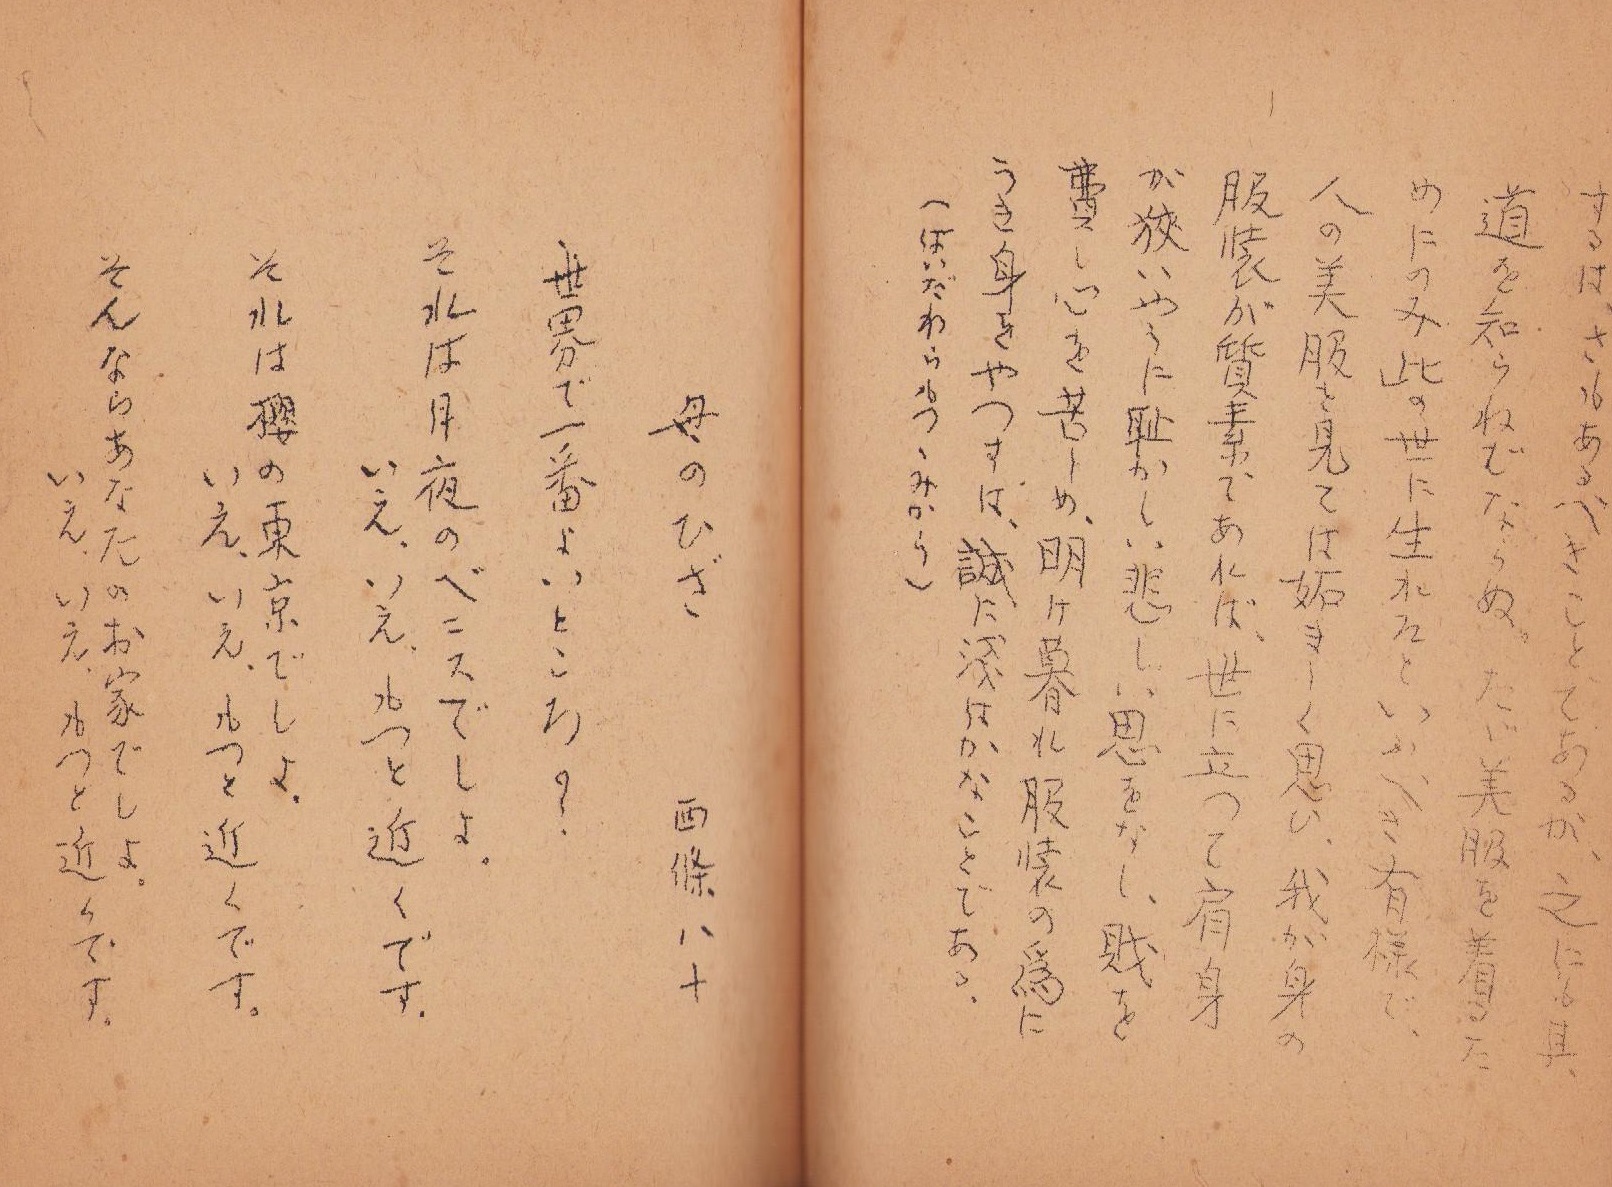 するは、さもあるべきことであるが、之にも其、
道を知らねばならぬ。たゞ美服を着るた
めにのみ此の世に生れたといふべき有様で、
人の美服を見ては妬ましく思ひ、我が身の
服装が質素であれば、世に立つて肩身
が狭いやうに恥かしい悲しい思をなし、財を
費し心を苦しめ、明け暮れ服装の為に
うき身をやつすは、誠に浅はかなことである、
母のひざ　　西條八十
世界で一番よいところ？
それは月夜のベニスでしよ。
いえ、いえ、もつと近くです。
それは櫻の東京でしよ。
いえ、いえ、もつと近くです。
そんならあなたのお家でしよ。
いえ、いえ、もつと近くです。